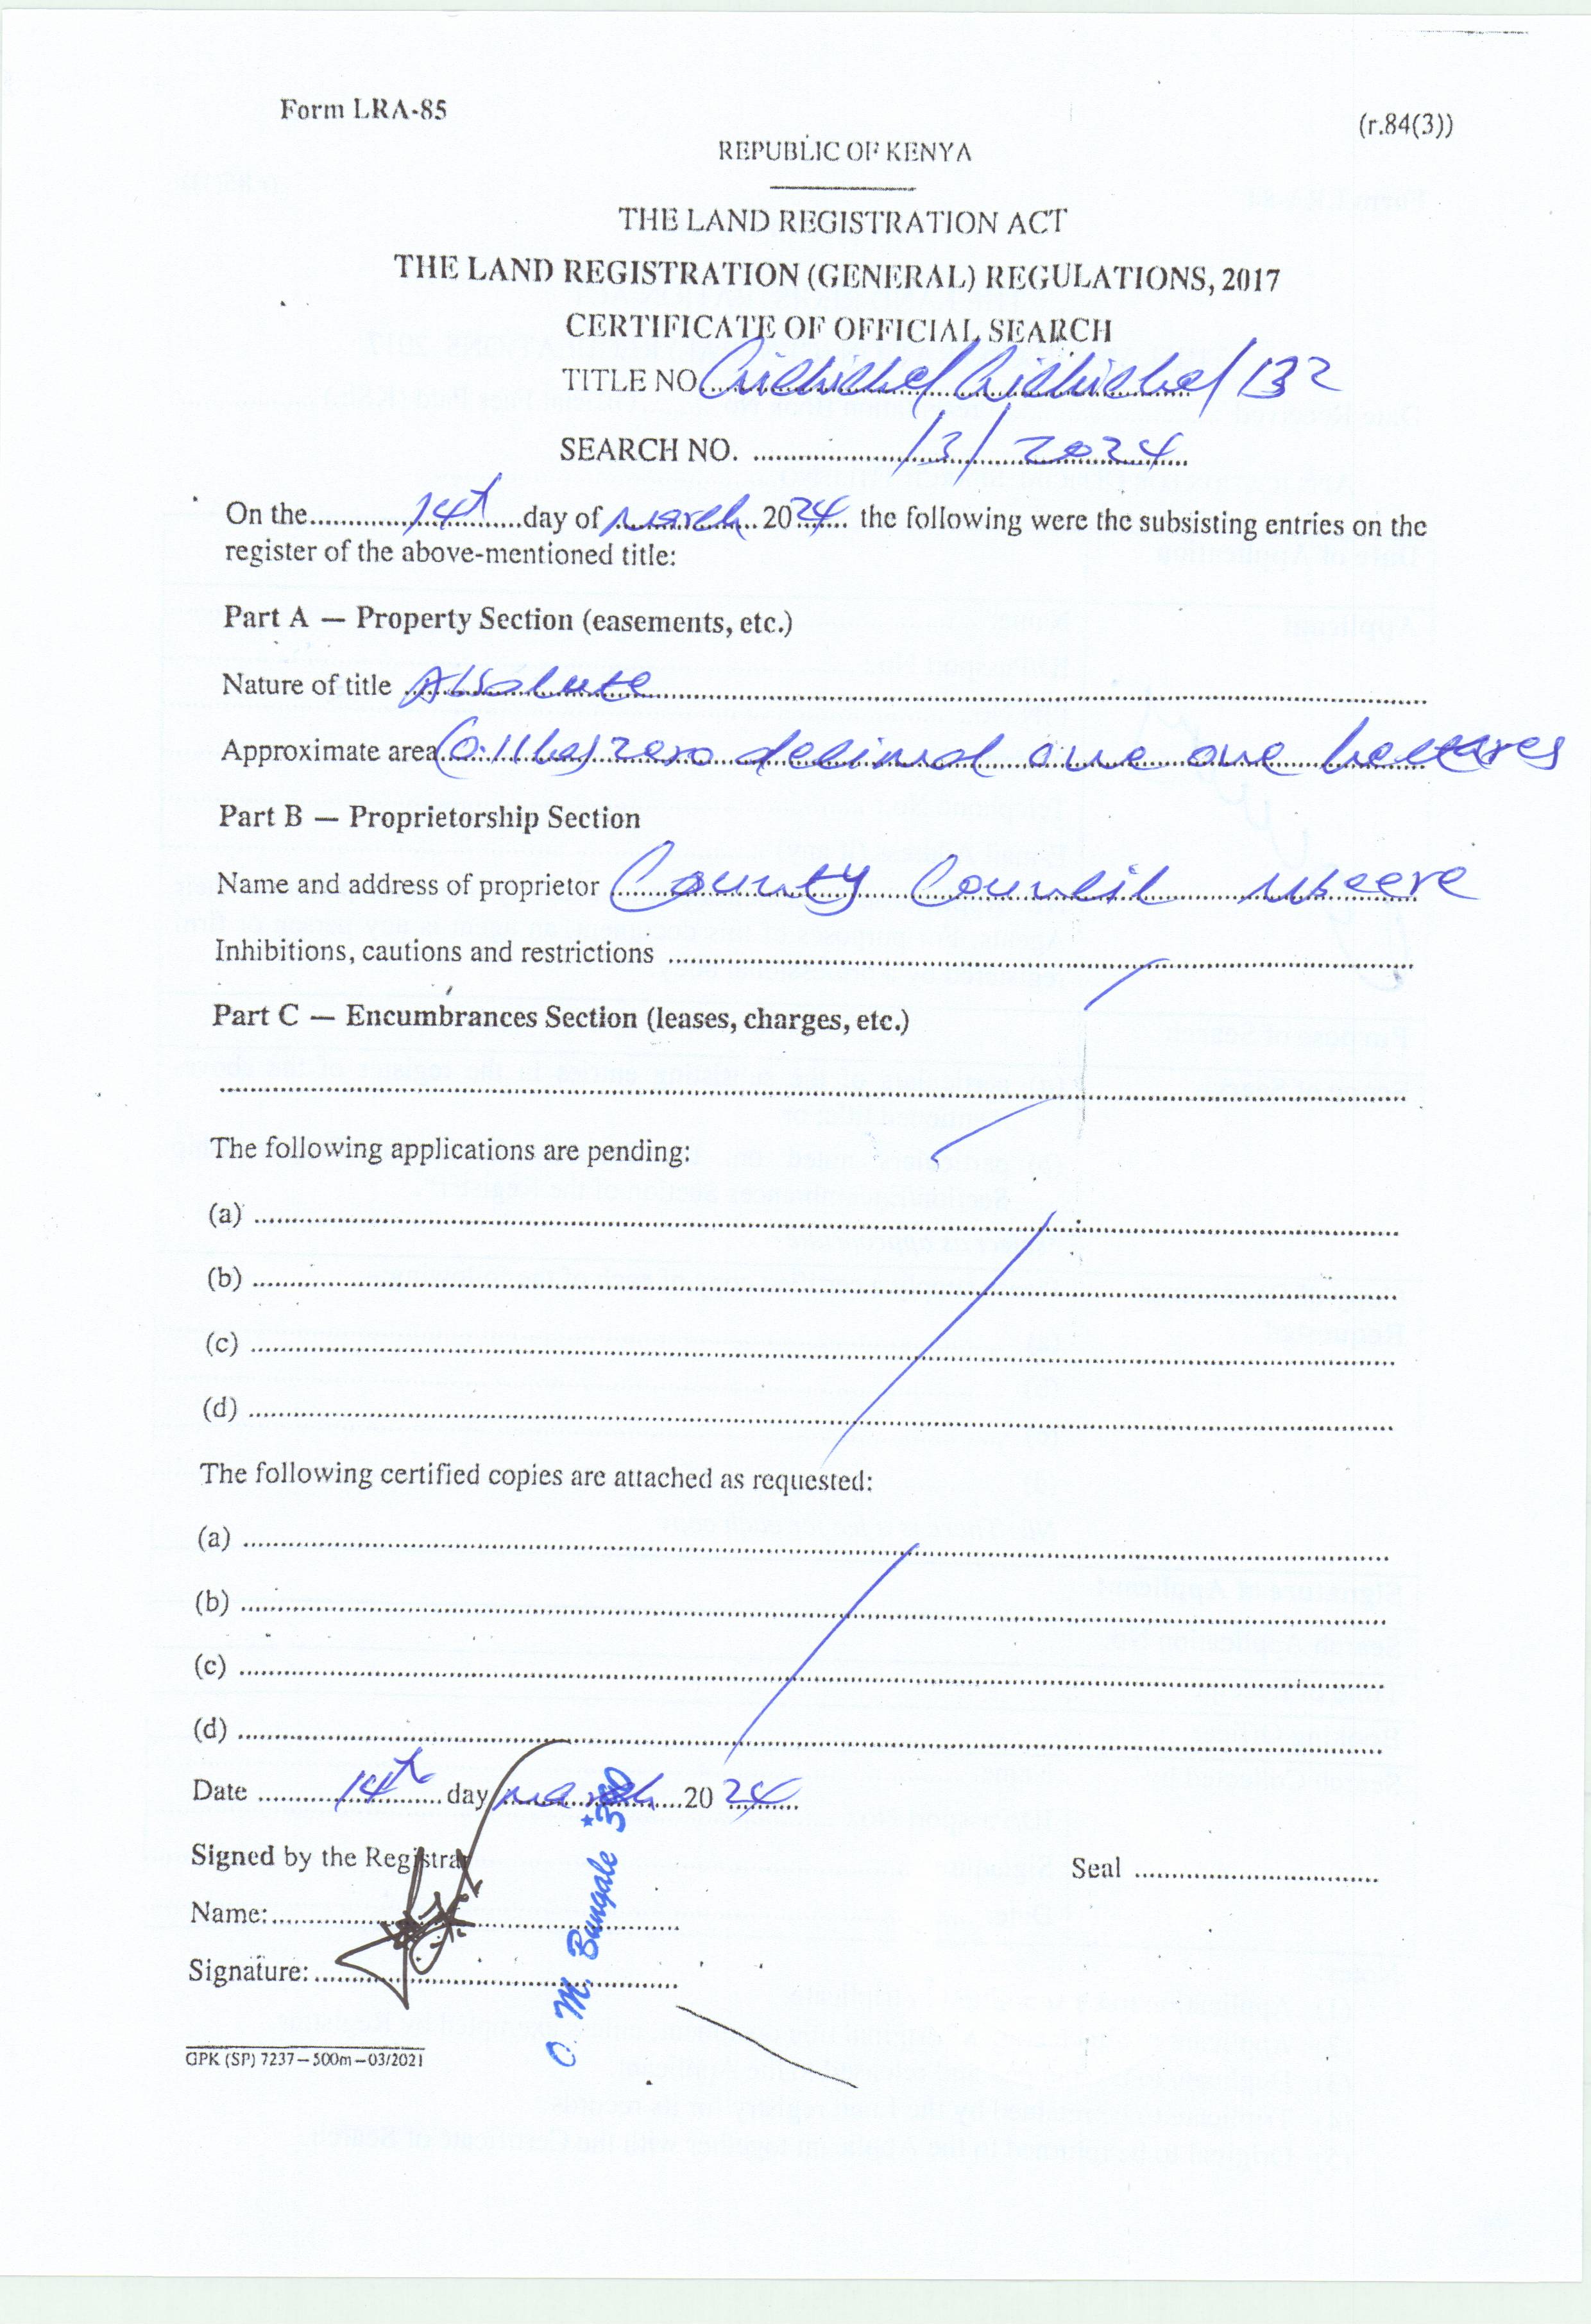 Form LRA-85
(r.84(3))
REPUBLIC OF KENYA
THE LAND REGISTRATION ACT
THE LAND REGISTRATION (GENERAL) REGULATIONS, 2017
CERTIFICATE OF OFFICIAL SEARCH
TITLE NO. /132
SEARCH NO. /3/2024
On the 14th day of March 2024 the following were the subsisting entries on the
register of the above-mentioned title:
Part A — Property Section (easements, etc.)
Nature of title Absolute
Approximate area (0.11ha) zero decimal one one hectares
Part B — Proprietorship Section
Name and address of proprietor County Council Mbeere
Inhibitions, cautions and restrictions
Part C — Encumbrances Section (leases, charges, etc.)
The following applications are pending:
(a)
(b)
(c)
(d)
The following certified copies are attached as requested:
(a)
(b)
(c)
(d)
Date 14th day March 2024
Signed by the Registrar
Seal
Name:
Signature:
M. Bungale *380
GPK (SP) 7237—500m—03/2021